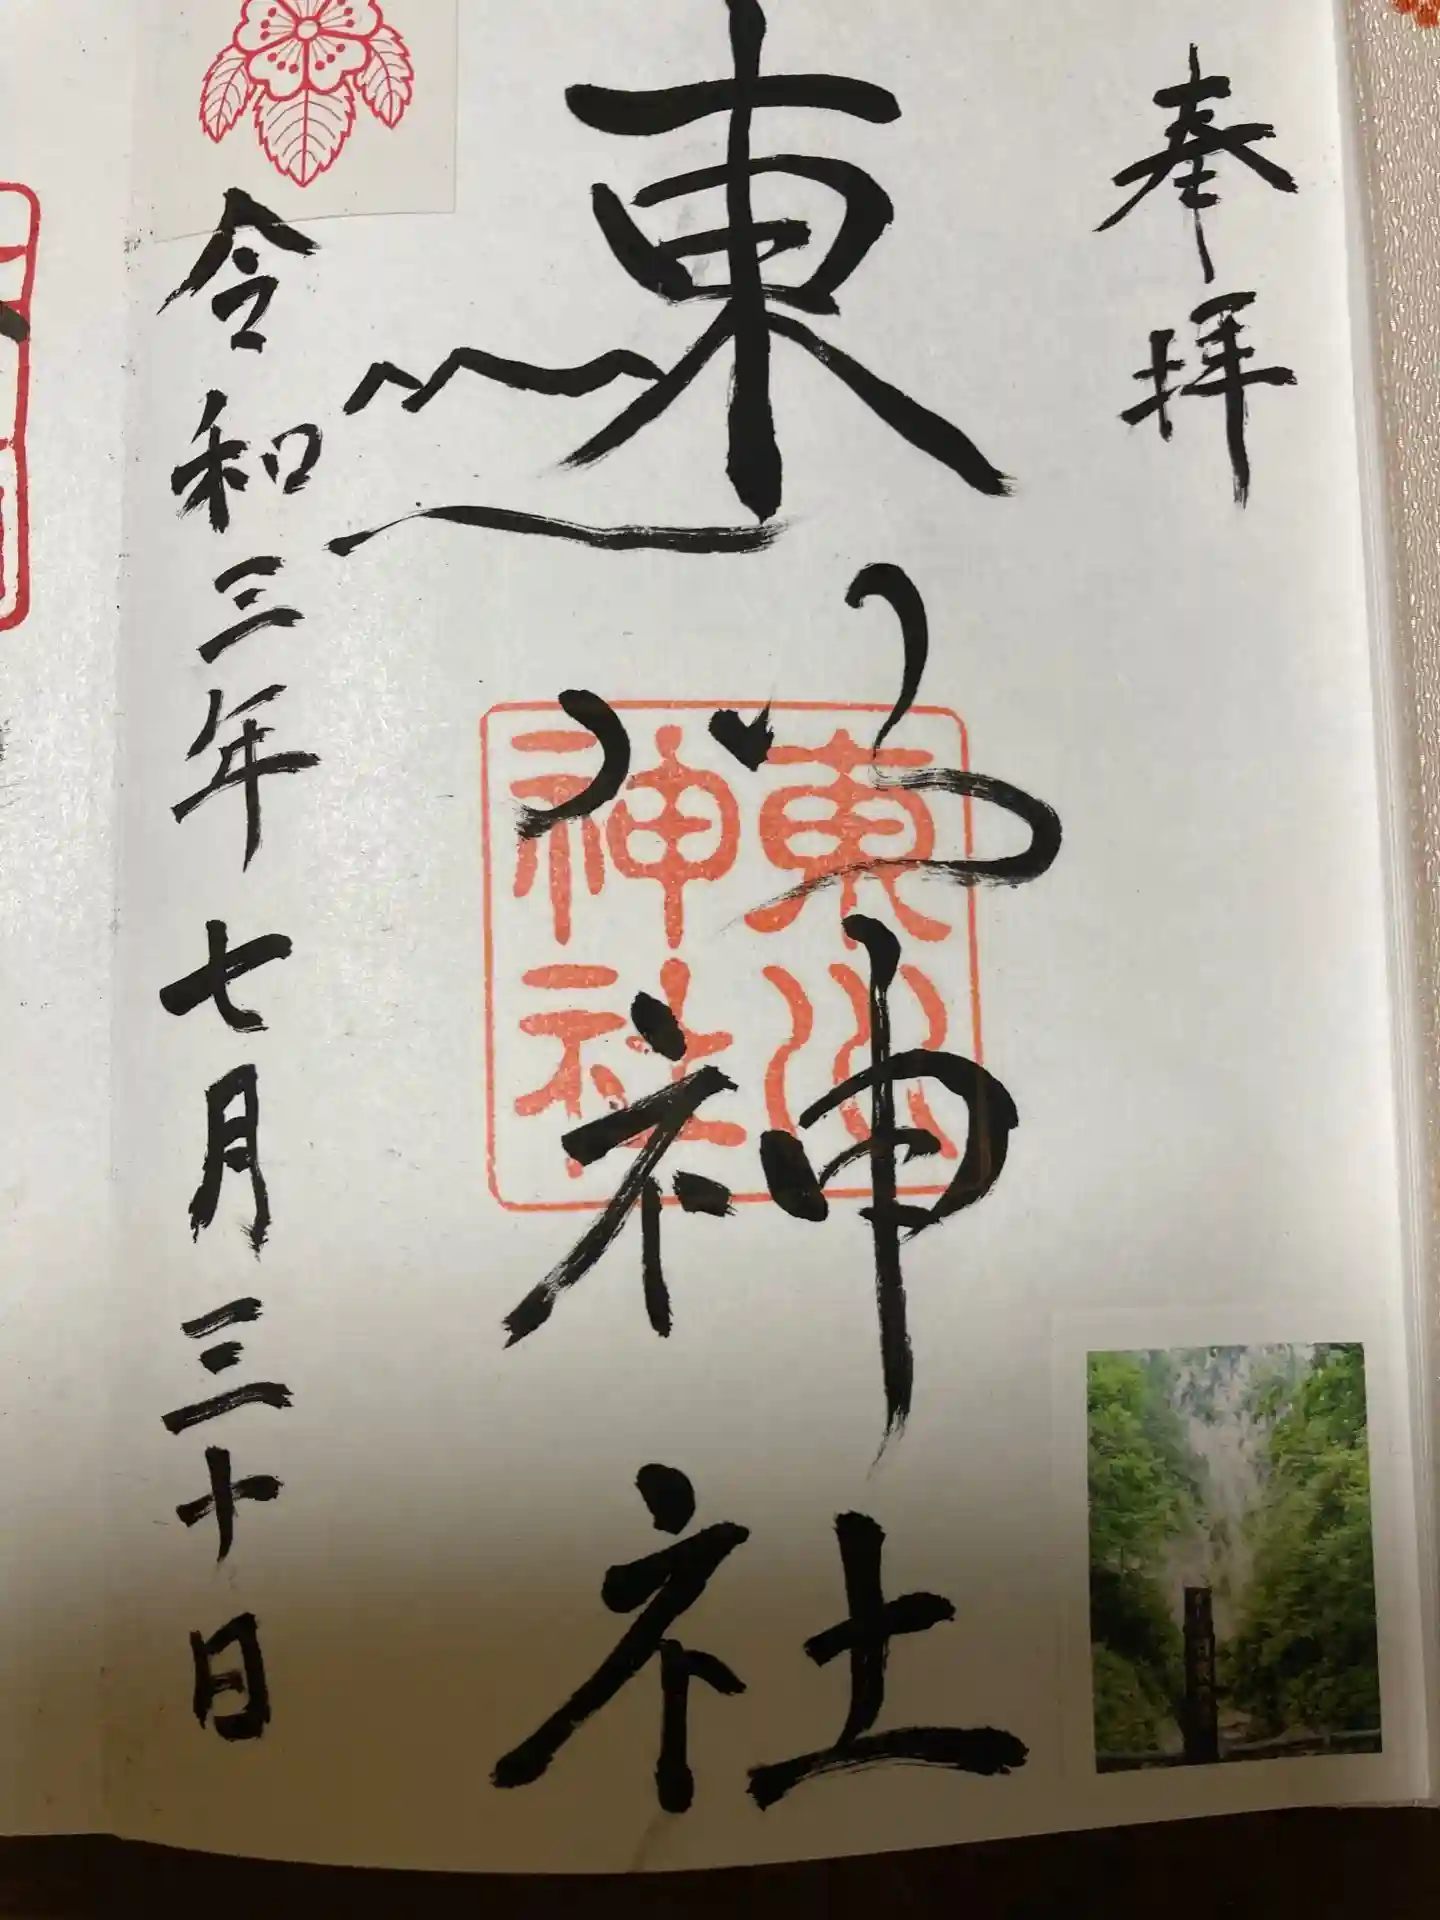 奉拝
東川神社
東川
神社
令和三年七月三十日